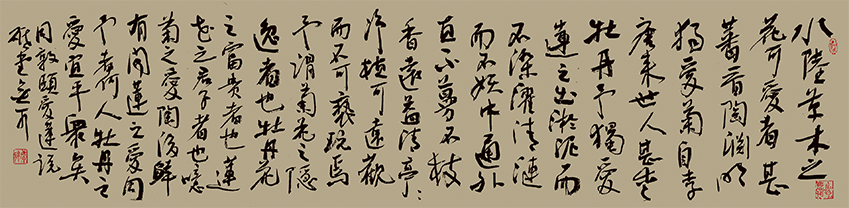 水陸草木之
花可愛者甚
蕃晋陶淵明
獨愛菊自李
唐来世人甚愛
牡丹予獨愛
蓮之出淤泥而
不染濯清漣
而不妖中通外
直不蔓不枝
香遠益清亭亭
净植可遠觀
而不可褻玩焉
予謂菊花之隱
逸者也牡丹花
之富貴者也蓮
花之君子者也噫
菊之愛陶後鮮
有聞蓮之愛同
予者何人牡丹之
愛宜乎眾矣
周敦頤愛蓮說